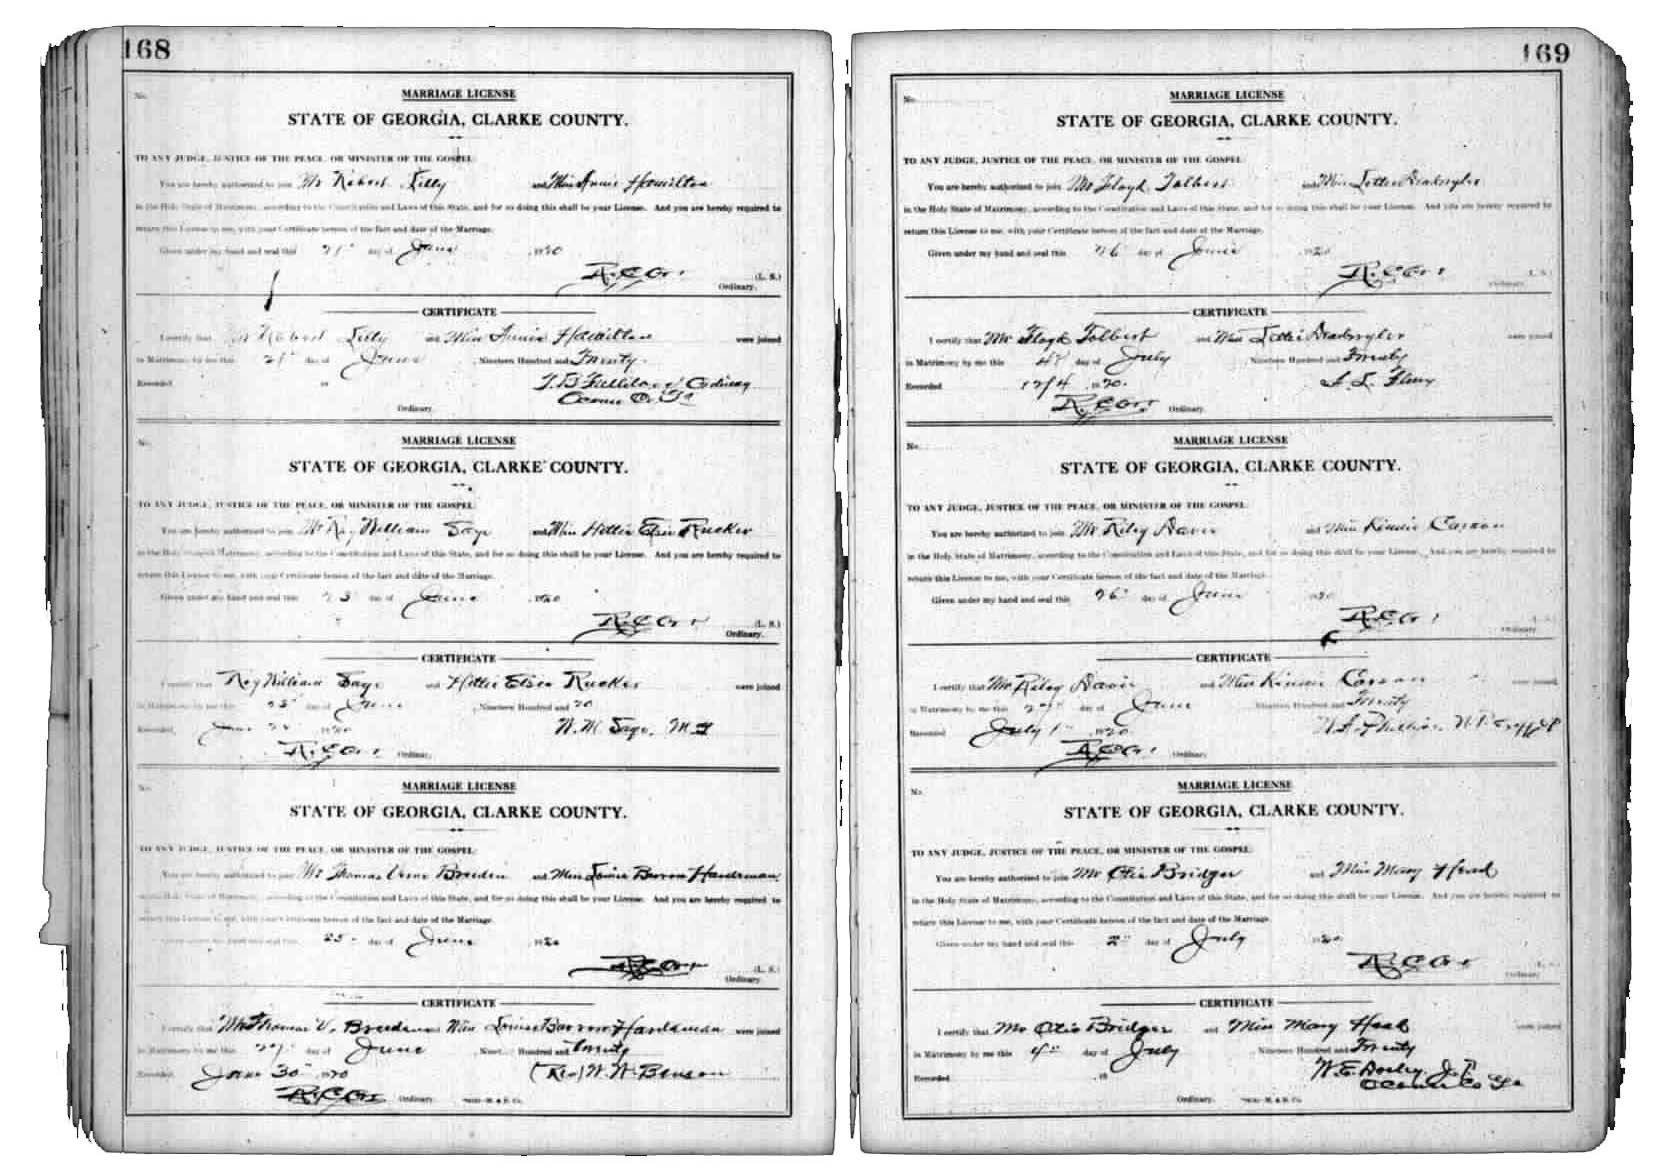 168
No.
MARRIAGE LICENSE
STATE OF GEORGIA, CLARKE COUNTY.
TO ANY JUDGE, JUSTICE OF THE PEACE, OR MINISTER OF THE GOSPEL:
You are hereby authorized to join Mr Robert Lilly and Miss Annie Hamilton
in the Holy State of Matrimony, according to the Constitution and Laws of this State, and for so doing this shall be your License. And you are hereby required to
return this License to me, with your Certificate hereon of the fact and date of the Marriage.
Given under my hand and seal this 21" day of June 1920
(L. S.)
Ordinary.
CERTIFICATE
I certify that Mr Robert Lilly and Miss Annie Hamilton were joined
in Matrimony by me this 21" day of June, Nineteen Hundred and Twenty
Recorded, Ordinary
Oconee Co. Ga
Ordinary.
No.
MARRIAGE LICENSE
STATE OF GEORGIA, CLARKE COUNTY.
TO ANY JUDGE, JUSTICE OF THE PEACE, OR MINISTER OF THE GOSPEL:
You are hereby authorized to join Mr Roy William Saye and Miss Hettie Elsie Rucker
in the Holy State of Matrimony, according to the Constitution and Laws of this State, and for so doing this shall be your License. And you are hereby required to
return this License to me, with your Certificate hereon of the fact and date of the Marriage.
Given under my hand and seal this 23" day of June 1920
(L. S.)
Ordinary.
CERTIFICATE
I certify that Roy William Saye and Hettie Elsie Rucker were joined
in Matrimony by me this 23" day of June, Nineteen Hundred and 20
Recorded, June 1920 W. M. Saye, M G
Ordinary.
No.
MARRIAGE LICENSE
STATE OF GEORGIA, CLARKE COUNTY.
TO ANY JUDGE, JUSTICE OF THE PEACE, OR MINISTER OF THE GOSPEL:
You are hereby authorized to join Mr Thomas Breedin and Miss Louise Barrow Hardeman
in the Holy State of Matrimony, according to the Constitution and Laws of this State, and for so doing this shall be your License. And you are hereby required to
return this License to me, with your Certificate hereon of the fact and date of the Marriage.
Given under my hand and seal this 25" day of June 1920
(L. S.)
Ordinary.
CERTIFICATE
I certify that Mr Thomas V. Breeden and Miss Louise Barrow Hardeman were joined
in Matrimony by me this day of June, Nineteen Hundred and twenty
Recorded, June 30" 1920 (Rev) W. W. Benson
Ordinary.
169
No.
MARRIAGE LICENSE
STATE OF GEORGIA, CLARKE COUNTY.
TO ANY JUDGE, JUSTICE OF THE PEACE, OR MINISTER OF THE GOSPEL:
You are hereby authorized to join Mr Floyd Tolbert and Miss Lottie
in the Holy State of Matrimony, according to the Constitution and Laws of this State, and for so doing this shall be your License. And you are hereby required to
return this License to me, with your Certificate hereon of the fact and date of the Marriage.
Given under my hand and seal this 26" day of June 1920
(L. S.)
Ordinary.
CERTIFICATE
I certify that Mr Floyd Tolbert and Miss Lottie were joined
in Matrimony by me this 4" day of July Nineteen Hundred and Twenty
Recorded 12/4 1920.
Ordinary.
No.
MARRIAGE LICENSE
STATE OF GEORGIA, CLARKE COUNTY.
TO ANY JUDGE, JUSTICE OF THE PEACE, OR MINISTER OF THE GOSPEL:
You are hereby authorized to join Mr Riley Davis and Miss Kinnie Carson
in the Holy State of Matrimony, according to the Constitution and Laws of this State, and for so doing this shall be your License. And you are hereby required to
return this License to me, with your Certificate hereon of the fact and date of the Marriage.
Given under my hand and seal this 26" day of June 1920
(L. S.)
Ordinary.
CERTIFICATE
I certify that Mr Riley Davis and Miss Kinnie Carson were joined
in Matrimony by me this day of June Nineteen Hundred and Twenty
Recorded July 1" 1920
Ordinary.
No.
MARRIAGE LICENSE
STATE OF GEORGIA, CLARKE COUNTY.
TO ANY JUDGE, JUSTICE OF THE PEACE, OR MINISTER OF THE GOSPEL:
You are hereby authorized to join Mr Otis Bridges and Miss Mary Head
in the Holy State of Matrimony, according to the Constitution and Laws of this State, and for so doing this shall be your License. And you are hereby required to
return this License to me, with your Certificate hereon of the fact and date of the Marriage.
Given under my hand and seal this 2" day of July 1920
Ordinary.
CERTIFICATE
I certify that Mr Otis Bridges and Miss Mary Head were joined
in Matrimony by me this 4" day of July Nineteen Hundred and Twenty
Recorded , 19 W. E. Dooley, J. P.
Oconee Co Ga
Ordinary.